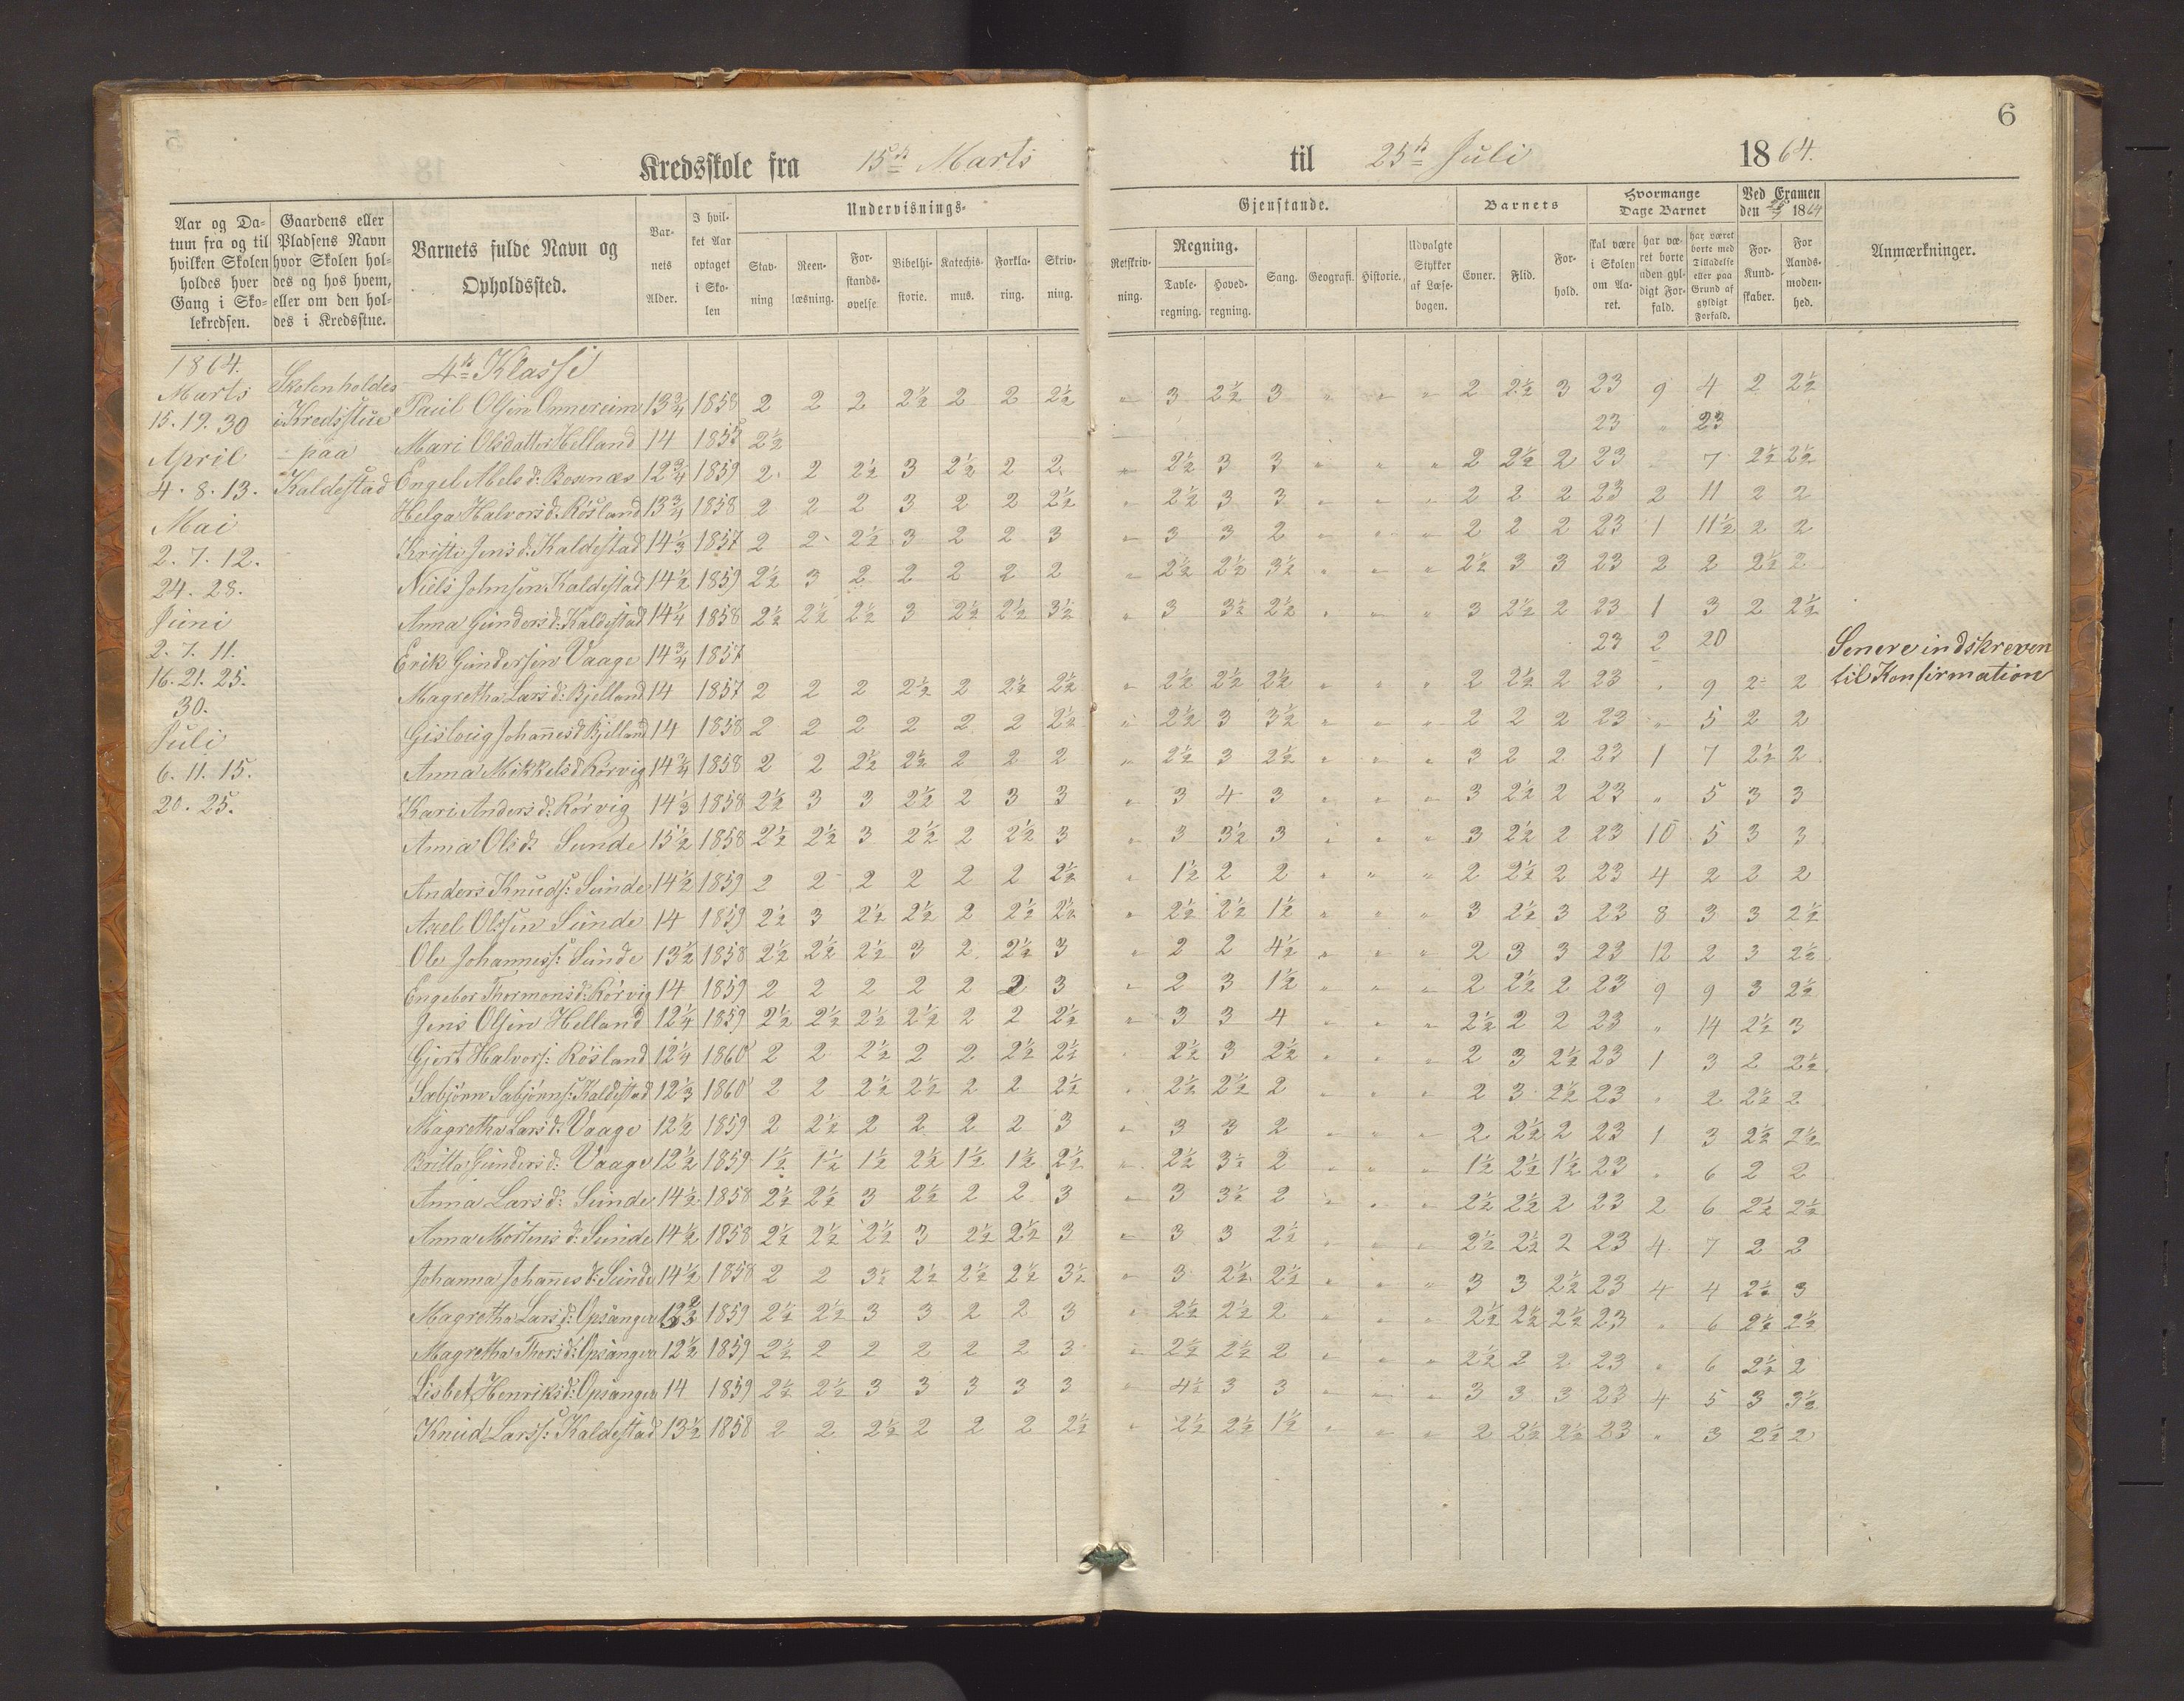 6
Kredsskole fra 15de Marts til 25de Juli 1864.
Aar og Datum fra og til hvilken Skolen holdes hver Gang i Skolekredsen.
Gaardens eller Pladsens Navn hvor Skolen holdes og hos hvem, eller om den holdes i Kredsstue.
Barnets fulde Navn og Opholdssted.
Barnets Alder.
I hvilket Aar optaget i Skolen
Undervisnings-
Gjenstande.
Stavning
Reenlæsning.
Forstandsøvelse
Bibelhistorie.
Katechismus.
Forklaring.
Skrivning.
Retskrivning.
Regning.
Tavleregning.
Hovedregning.
Sang.
Geografi.
Historie.
Udvalgte Stykker af Læsebogen.
Barnets
Evner.
Flid.
Forhold.
Hvormange Dage Barnet
skal være i Skolen om Aaret.
har været borte uden gyldigt Forfald.
har været borte med Tilladelse eller paa Grund af gyldigt Forfald.
Ved Examen den 25/7 1864
For Kundskaber.
For Aandsmodenhed.
Anmærkninger.
1864.
Marts
15. 19. 30
April
4. 8. 13.
Mai
2. 7. 12.
24. 28.
Juni
2. 7. 11.
16. 21. 25.
30.
Juli
6. 11. 15.
20. 25.
Skolen holdes
i Kredsstue
paa
Kaldestad
4de Klasse
Paul Olsen Onnereim 13 3/4 1858 2 2 2 2½ 2 2 2½ " 3 2½ 3 " " " 2 2½ 3 23 9 4 2 2½
Mari Olsdatter Helland 14 1858 2½ 23 " 23
Engel Nels d: Bosnæs 12 3/4 1859 2 2 2½ 3 2½ 2 2 " 2½ 3 3 " " " 2 2½ 2 23 7 2½ 2½
Helga Halvors d: Røsland 13 3/4 1858 2 2 2 3 2 2 2½ " 2½ 3 3 " " " 2 2 2 23 2 11 2 2
Kristi Jens d: Kaldestad 14 1/3 1857 2 2 2½ 3 2 2 3 " 3 3 2 " " " 2 2 2 23 1 11½ 2 2
Niels Johnsen Kaldestad 14½ 1859 2½ 3 2 2 2 2 2 " 2½ 2½ 3½ " " " 2½ 3 3 23 2 2 2½ 2
Anna Gunders d: Kaldestad 14 1/4 1858 2½ 2½ 2½ 3 2½ 2½ 3½ " 3 3½ 2½ " " " 3 2½ 2 23 1 3 2 2½
Erik Gundersen Vaage 14 3/4 1857 23 2 20 Senere indskreven
Magretha Lars d: Bjelland 14 1857 2 2 2 2½ 2 2½ 2½ " 2½ 2½ 2½ " " " 2 2½ 2 23 " 9 2 2 til Konfirmation
Gisloug Johannes d Bjelland 14 1858 2 2 2 2 2 2 2½ " 2½ 3 3½ " " " 2 2 2 23 " 5 2 2
Anna Mikkels d Rørvig 14 3/4 1858 2 2 2½ 2½ 2 2 2 " 2½ 3 2½ " " " 3 2 2 23 1 7 2½ 2
Kari Anders d: Rørvig 14 1/3 1858 2½ 3 3 2½ 2 3 3 " 3 4 3 " " " 3 2½ 2 23 " 5 3 3
Anna Ols d: Sunde 15½ 1858 2½ 2½ 3 2½ 2 2½ 3 " 3 3½ 3 " " " 3 2½ 2 23 10 5 3 3
Anders Knuds: Sunde 14½ 1859 2 2 2 2 2 2 2½ " 1½ 2 2 " " " 2 2½ 2 23 4 2 2 2
Axel Olssen Sunde 14 1859 2½ 3 2½ 2½ 2 2½ 2½ " 2½ 2½ 1½ " " " 3 2½ 3 23 8 3 3 2½
Ole Johanness: Sunde 13½ 1858 2½ 2½ 2½ 3 2 2½ 3 " 2 2 4½ " " " 2 3 3 23 12 2 3 2½
Engebor Thormons d: Rørvig 14 1859 2 2 2 2 2 2 3 " 2 3 1½ " " " 2 2½ 2 23 9 9 3 2½
Jens Olsen Helland 12 1/4 1859 2½ 2½ 2½ 2½ 2 2 2½ " 3 3 4 " " " 2½ 2 2 23 " 14 2½ 3
Gjert Halvors: Røsland 12 1/4 1860 2 2 2½ 2 2 2½ 2½ " 2½ 3 2½ " " " 2 3 2½ 23 1 3 2 2½
Sæbjørn Sæbjørns: Kaldestad 12 1/3 1860 2 2 2½ 2½ 2 2 2½ " 2½ 2½ 2 " " " 2 3 2½ 23 " 2 2½ 2
Magretha Lars d: Vaage 12½ 1859 2 2½ 2 2 2 2 3 " 3 3 2 " " " 2 2½ 2 23 1 3 2½ 2½
Britta Gunders d: Vaage 12½ 1859 1½ 1½ 1½ 2½ 1½ 1½ 2½ " 2½ 3½ 2 " " " 1½ 2½ 1½ 23 " 6 2 2
Anna Lars d: Sunde 14½ 1858 2½ 2½ 3 2½ 2 2 3 " 3 3½ 2 " " " 2½ 2½ 2 23 2 6 2½ 2½
Anna Mortens d: Sunde 14½ 1858 2½ 2½ 2½ 3 2½ 2½ 3 " 3 3 2½ " " " 2½ 2½ 2 23 4 7 2 2
Johanna Johannes d: Sunde 14½ 1858 2 2 3½ 2½ 2½ 2½ 3½ " 3 2½ 2½ " " " 3 3 2½ 23 4 4 2½ 3
Magretha Lars d: Opsanger 1859 2½ 2½ 3 3 2 2 3 " 2½ 2½ 2 " " " 2½ 2½ 2½ 23 " 6 2½ 2½
Magretha Thors d: Opsanger 12½ 1859 2½ 2 2 2 2 2 3 " 2½ 2½ 2 " " " 2½ 2 2 23 " 6 2½ 2
Lisbet Henriks d: Opsanger 14 1859 2½ 2½ 3 3 3 3 3 " 4½ 3 3 " " " 3 3 3 23 4 5 3 3½
Knud Larss: Kaldestad 13½ 1858 2 2 2½ 2 2 2 2½ " 2½ 2½ 1½ " " " 2 2½ 2½ 23 " 3 2½ 2